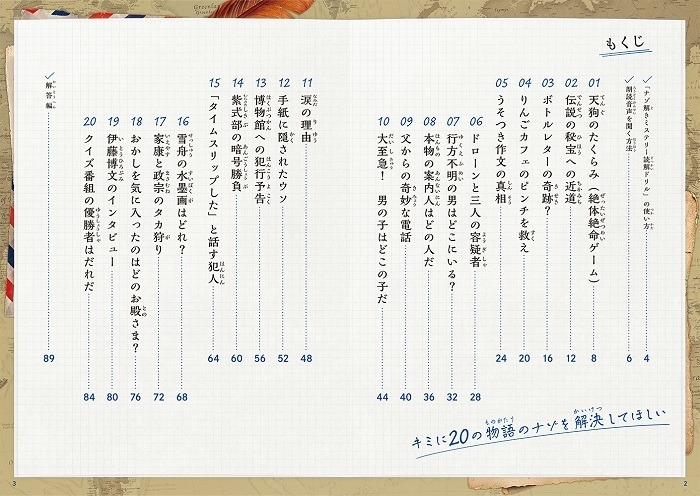 もくじ
✓「ナゾ解きミステリー読解ドリル」の使い方 4
✓朗読音声を聞く方法 6
01 天狗のたくらみ（絶体絶命ゲーム） 8
02 伝説の秘宝への近道 12
03 ボトルレターの奇跡? 16
04 りんごカフェのピンチを救え 20
05 うそつき作文の真相 24
06 ドローンと三人の容疑者 28
07 行方不明の男はどこにいる? 32
08 本物の案内人はどの人だ 36
09 父からの奇妙な電話 40
10 大至急! 男の子はどこの子だ 44
キミに20の物語のナゾを解決してほしい
11 涙の理由 48
12 手紙に隠されたウソ 52
13 博物館への犯行予告 56
14 紫式部の暗号勝負 60
15 「タイムスリップした」と話す犯人 64
16 雪舟の水墨画はどれ? 68
17 家康と政宗のタカ狩り 72
18 おかしを気に入ったのはどのお殿さま? 76
19 伊藤博文のインタビュー 80
20 クイズ番組の優勝者はだれだ 84
✓解答編 89
2
3